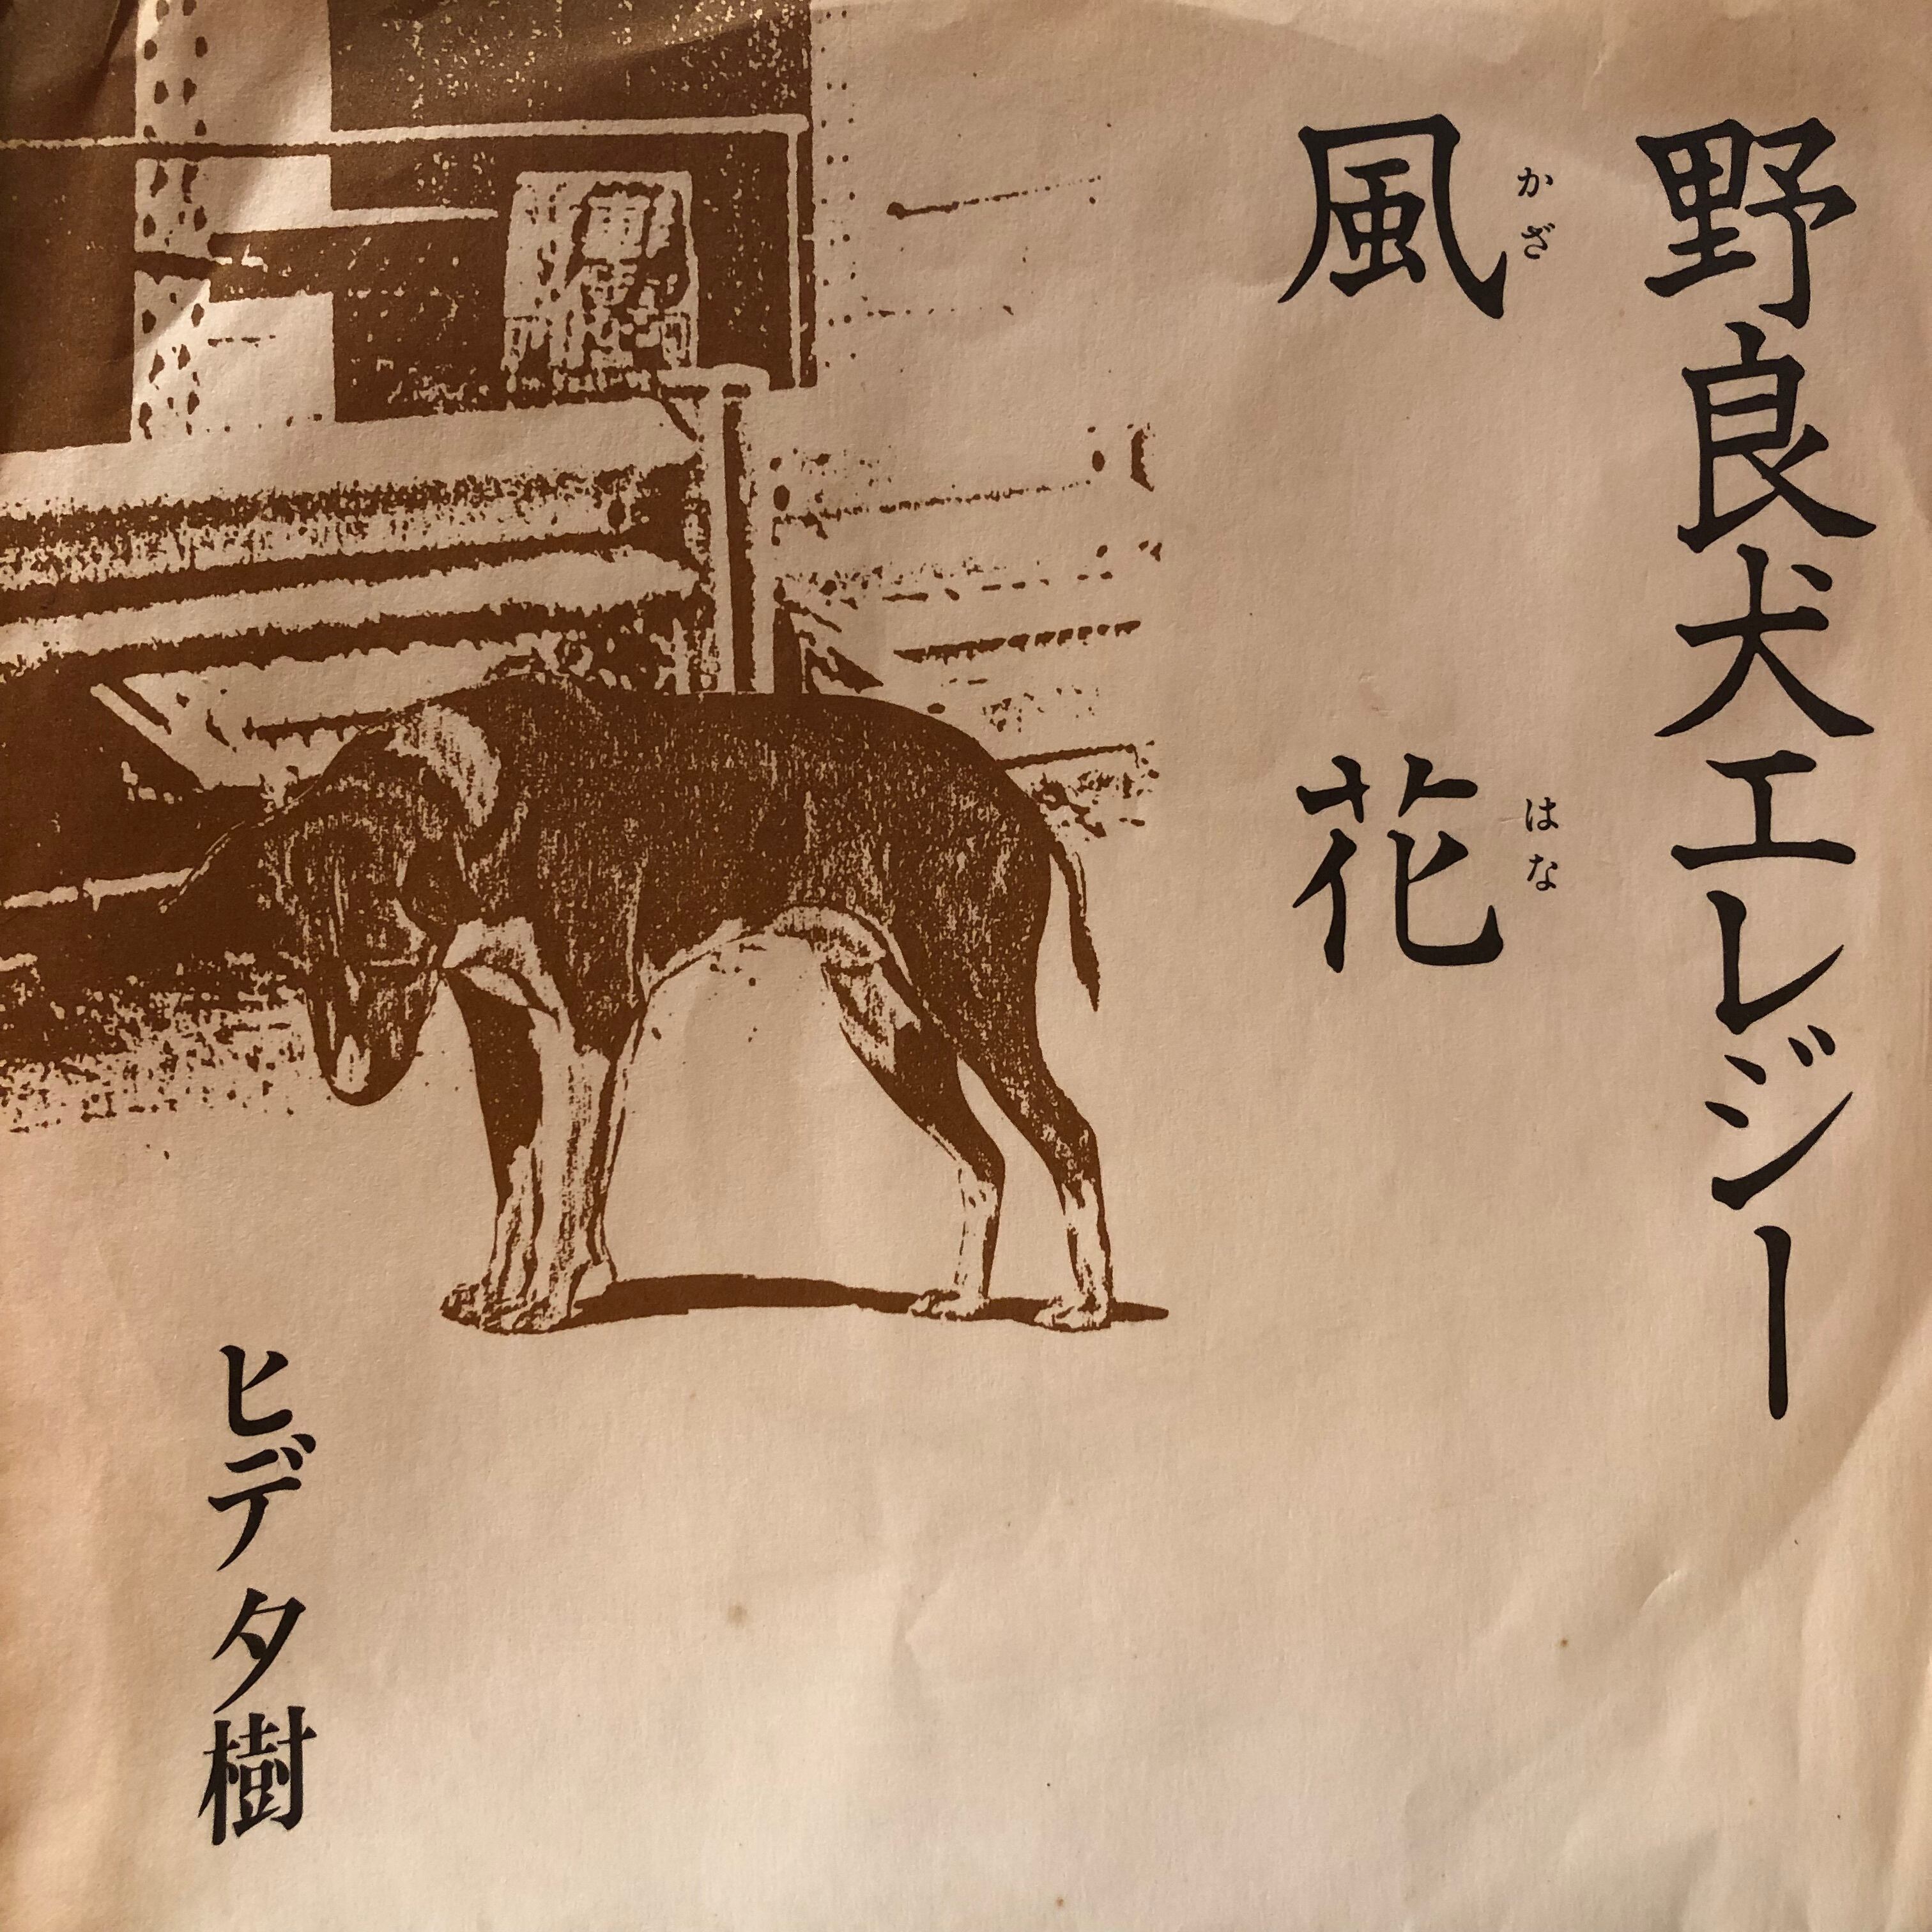 野良犬エレジー
かざ はな
風花
ヒデタ樹